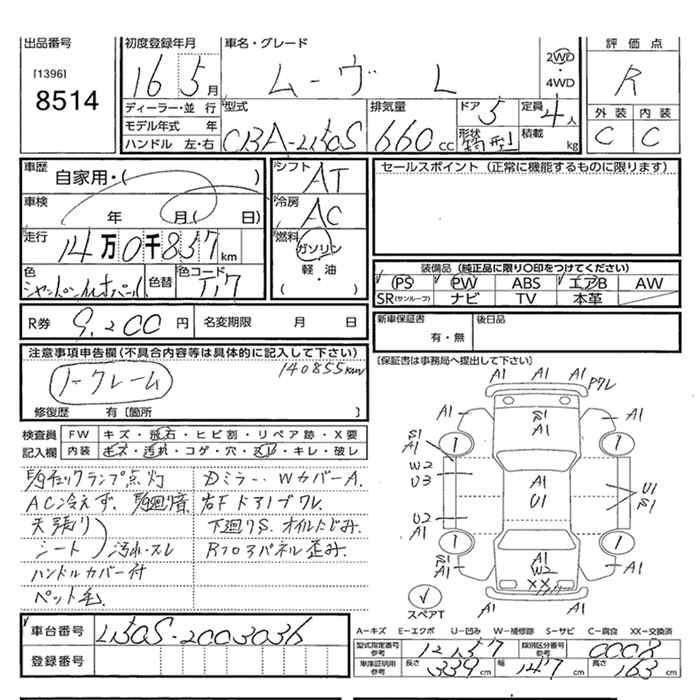 出品番号
[1396]
8514
初度登録年月
16 5月
車名・グレード
ムーヴ L
2WD
・
4WD
評価点
R
外装 内装
C C
ディーラー・並行
モデル年式 年
ハンドル 左・右
型式
CBA-L150S
排気量
660cc
ドア
5
形状
箱型
定員
4人
積載
kg
車歴
自家用・( )
車検
年 月( 日)
走行
14万0千857km
色
シャンパンメタルオパール
色替
色コード
T17
シフト
AT
冷房
AC
燃料
ガソリン
軽・油
( )
セールスポイント (正常に機能するものに限ります)
装備品 (純正品に限り〇印をつけてください)
PS PW ABS エアB AW
SR(サンルーフ) ナビ TV 本革
R券 9.200円 名変期限 月 日
新車保証書
有・無
後日品
[保証書は事務局へ提出して下さい]
注意事項申告欄(不具合内容等は具体的に記入して下さい)
140855km
ノークレーム
修復歴 有〔箇所 〕
検査員 FW キズ・飛石・ヒビ割・リペア跡・X要
記入欄 内装 キズ・汚れ・コゲ・穴・スレ・キレ・破レ
チェックランプ点灯 Dミラー、WカバーA.
AC冷えず. 右Fドアノブワレ.
天張り 下廻りS. オイルにじみ.
シート 汚れ・スレ Rフロアパネル歪み.
ハンドルカバー付
ペット毛
A1 A1 A1 ワレ
A1 S1 A1 A1
S1 A1
W2 U3
A1 U1
U1 S1
U2 A1
A1 W2
XX
A1 A1
スペアT
車台番号 L150S-2003036
登録番号
A-キズ E-エクボ U-凹み W-補修跡 S-サビ C-腐食 XX-交換済
型式指定番号 参考 類別区分番号 参考 0008
車庫証明用 参考 長さ 339cm 幅 147cm 高さ 163cm